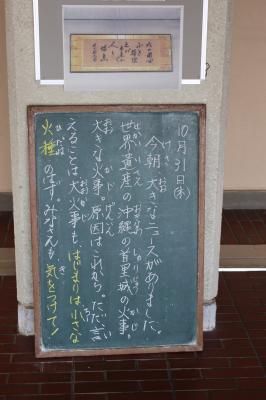 10月31日(木)
今朝、大きなニュースがありました。
世界遺産の沖縄の首里城の火事。
大きな火事。原因はこれから。ただ、言
えることは、大火事も、はじまりは小さな
火種のはず。みなさんも気をつけて!